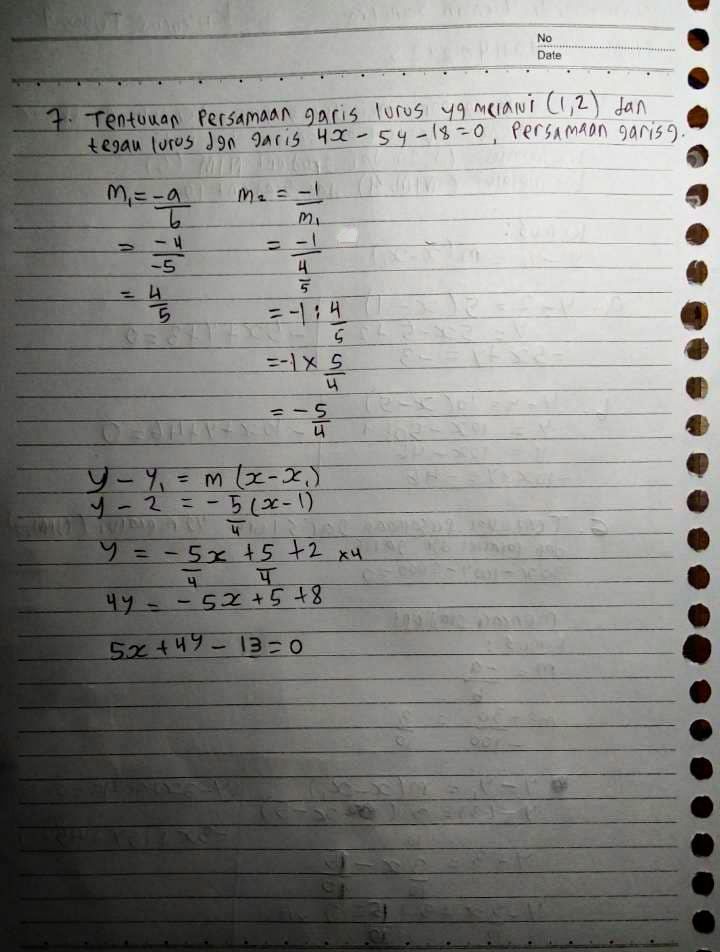 No
Date
7. Tentukan Persamaan garis lurus yg melalui (1,2) dan
tegak lurus dgn garis 4x - 5y - 18 = 0, Persamaan garis g.
m₁ = -a/b m₂ = -1/m₁
= -4/-5 = -1/(4/5)
= 4/5 = -1 : 4/5
= -1 × 5/4
= - 5/4
y - y₁ = m (x - x₁)
y - 2 = - 5/4 (x - 1)
y = - 5/4 x + 5/4 + 2 ×4
4y = - 5x + 5 + 8
5x + 4y - 13 = 0